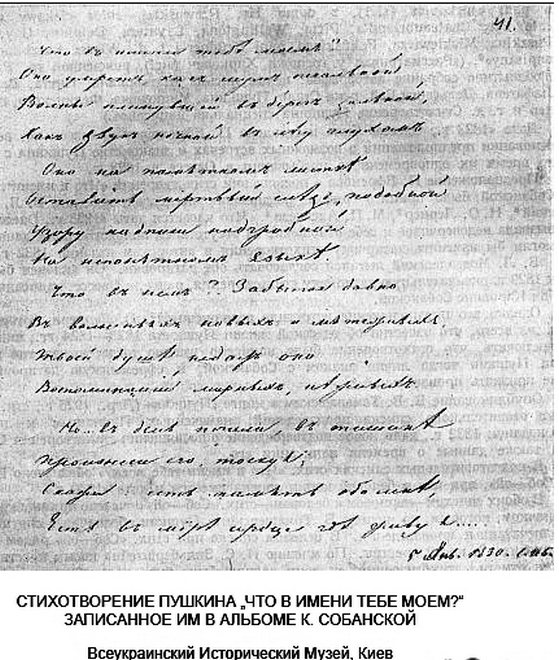 41.
Что въ имени тебѣ моемъ?
Оно умретъ какъ шумъ печальной
Волны плеснувшей въ берегъ дальной,
Какъ звукъ ночной въ лѣсу глухомъ
Оно на памятномъ листкѣ
Оставитъ мертвый слѣдъ, подобной
Узору надписи надгробной
На непонятномъ языкѣ.
Что въ немъ? Забытое давно
Въ волненьяхъ новыхъ и мятежныхъ,
Твоей душѣ не дастъ оно
Воспоминаній мирныхъ, нѣжныхъ.
Но.. въ день печали въ тишинѣ
Произнеси его, тоскуя;
Скажи есть память обо мнѣ,
Есть въ мірѣ сердце гдѣ живу я....
5 Янв. 1830.
СТИХОТВОРЕНИЕ ПУШКИНА „ЧТО В ИМЕНИ ТЕБЕ МОЕМ?“
ЗАПИСАННОЕ ИМ В АЛЬБОМЕ К. СОБАНСКОЙ
Всеукраинский Исторический Музей, Киев